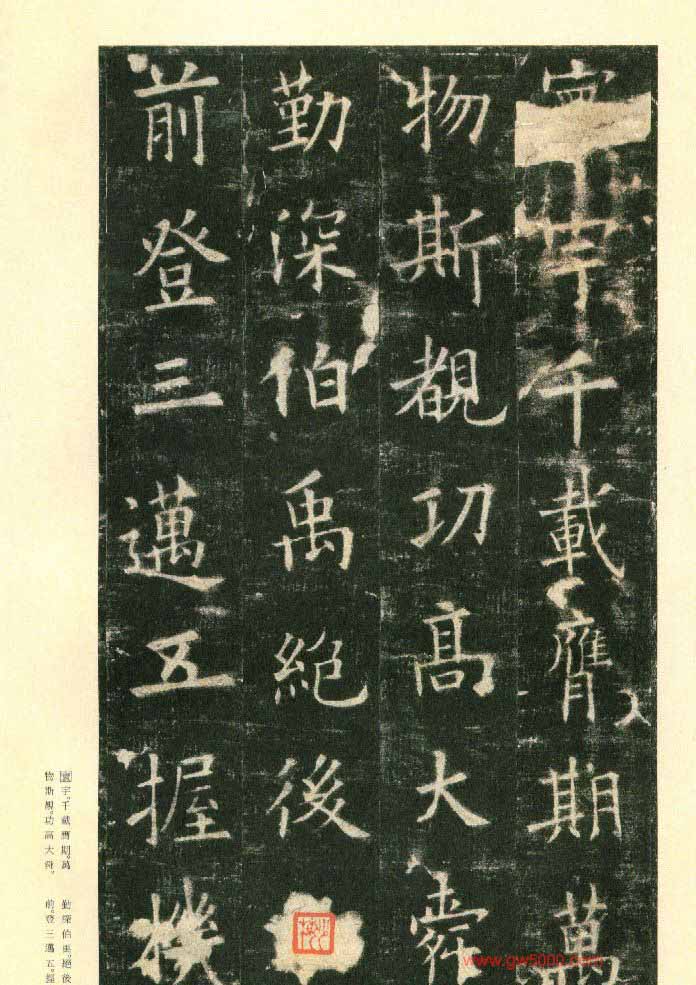 寰宇千載膺期萬
物斯覩功高大舜
勤深伯禹絕後
前登三邁五握機
寰宇。千載膺期。萬
物斯覩。功高大舜。
勤深伯禹。絕後
前。登三邁五。握
www.gw5000.com